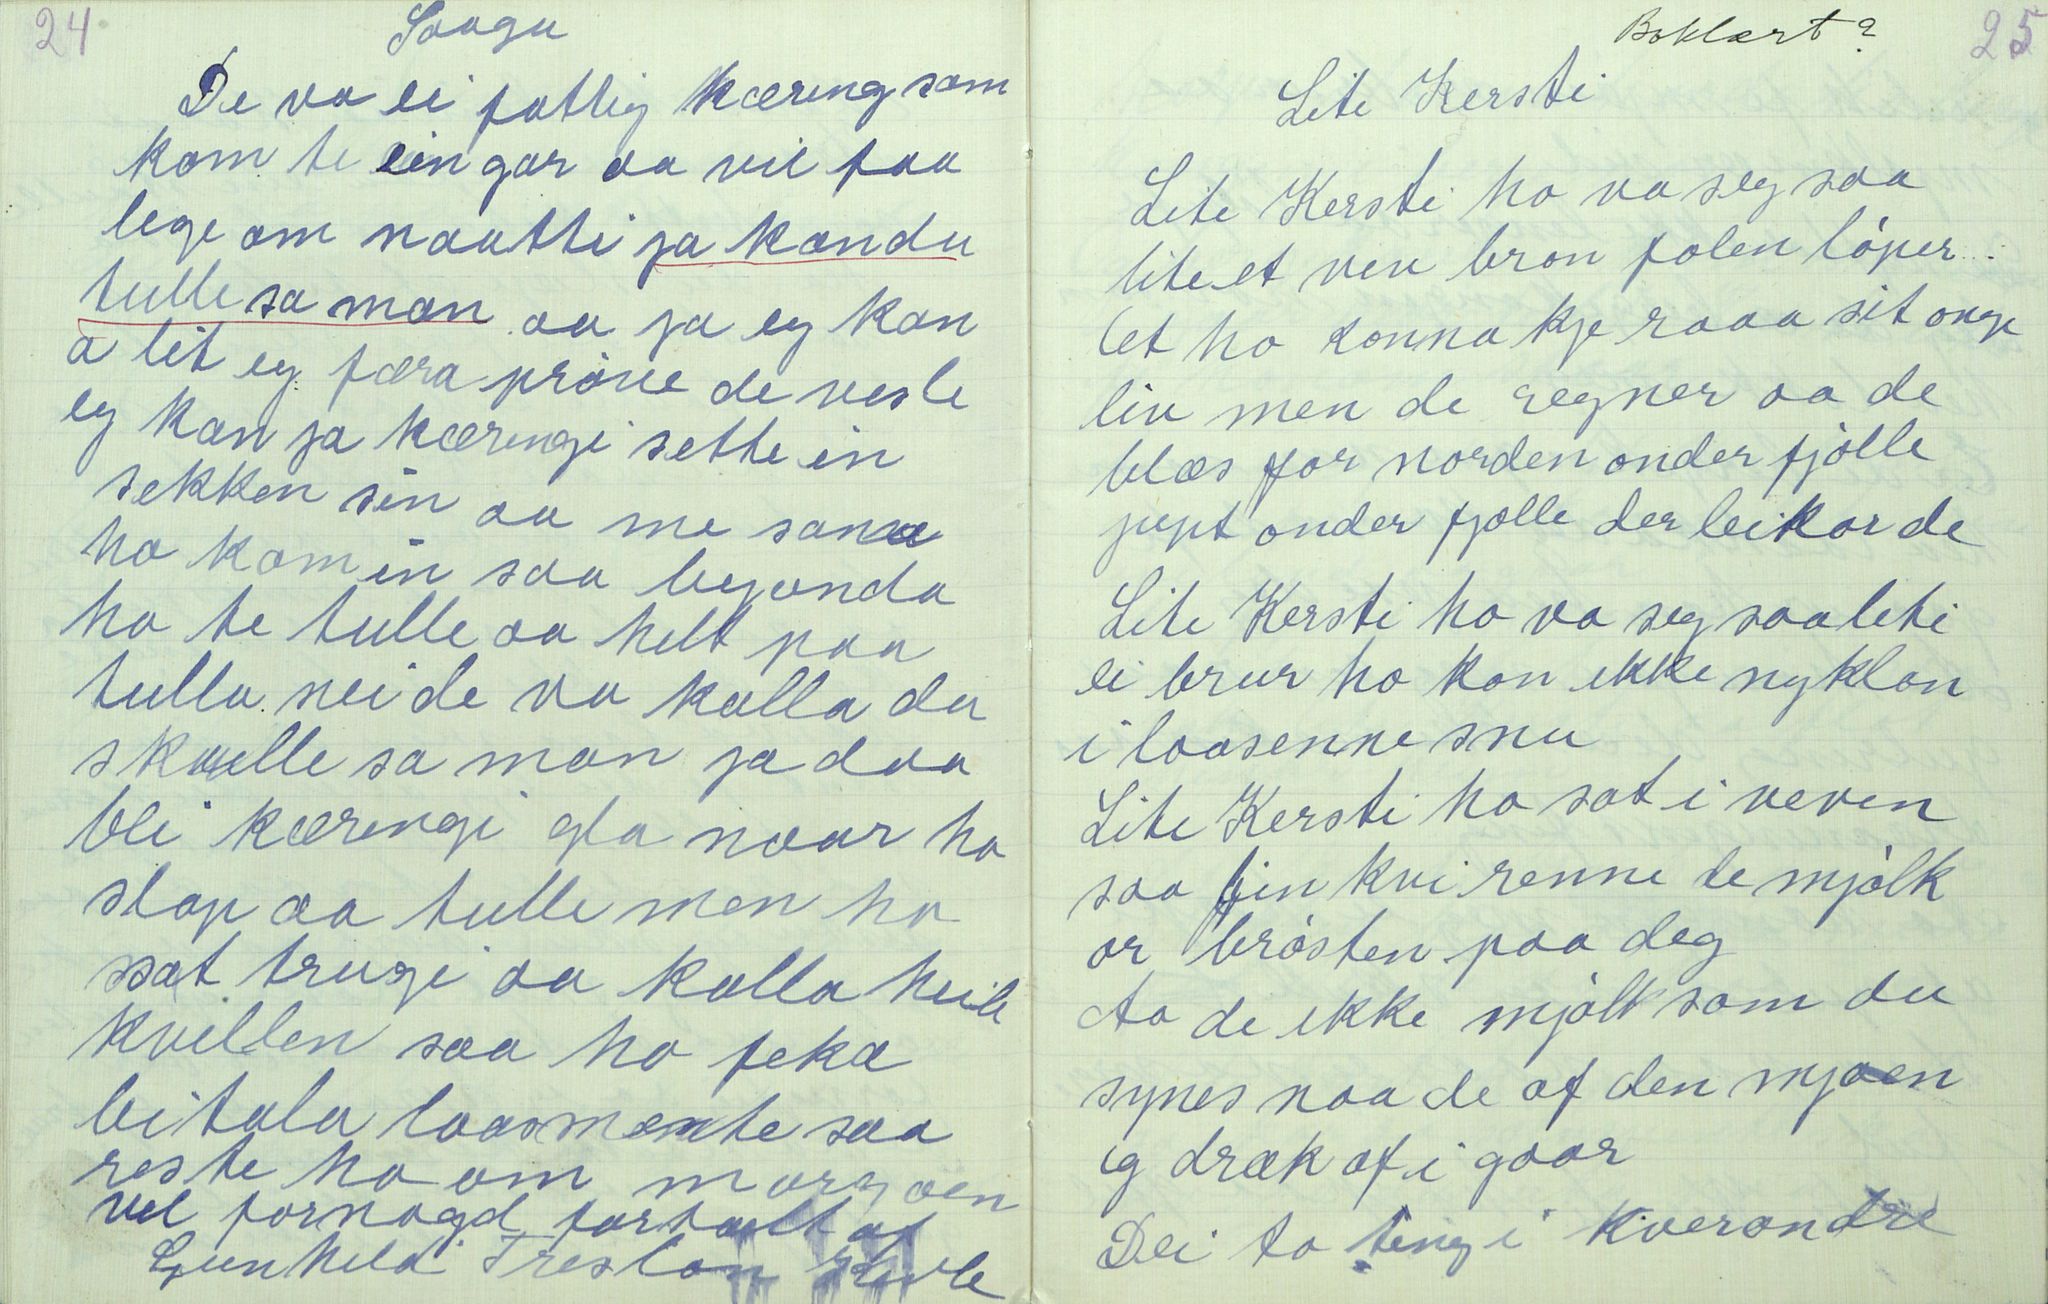 24
Soogu
De va ei fattig kæring som
kom te ein gar aa vil faa
lege om naatti ja kandu
tulle sa man aa ja eg kan
a lit eg færa prøve de vesle
eg kan ja kæringi sette in
sekken sin aa me sama
ho kom in saa begonda
ho te tulle aa helt paa
tulla nei de va kalla du
skulle sa man ja daa
blei kæringi gla naar ho
slap aa tulle men ho
sat trugi aa kalla heile
kvellen saa ho feka
bitala laasmente saa
reste ho om morgoen
vel fornøgd fortalt af
Gunhild Treslan
25
Boklært?
Lite Kersti
Lite Kersti ho va seg saa
lite et ven bron folen løper
et ho konna kje raaa sit onge
liv men de regner aa de
blæs for norden onder fjølle
jupt onder fjølle der leikar de
Lite Kersti ho va seg saa liti
ei brur ho kan ikke nyklan
i laasenne snu
Lite Kersti ho sat i veven
saa fin kvi renne de mjølk
or brøsten paa deg
Aa de ikke mjølk som du
synes naa de af den mjøen
eg dræk af i gaar
Dei to ting i kverandre